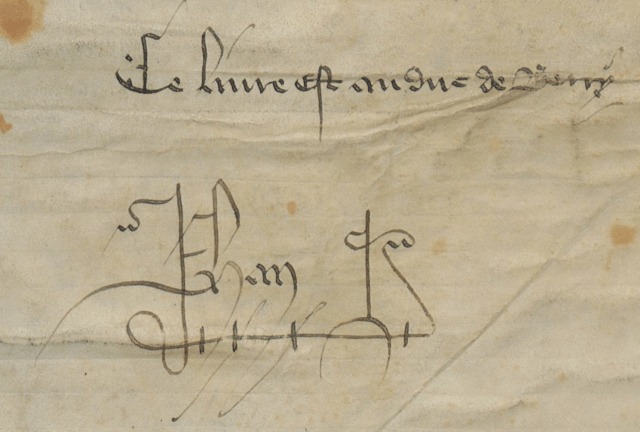 Ce livre est au duc de Berry
Jehan